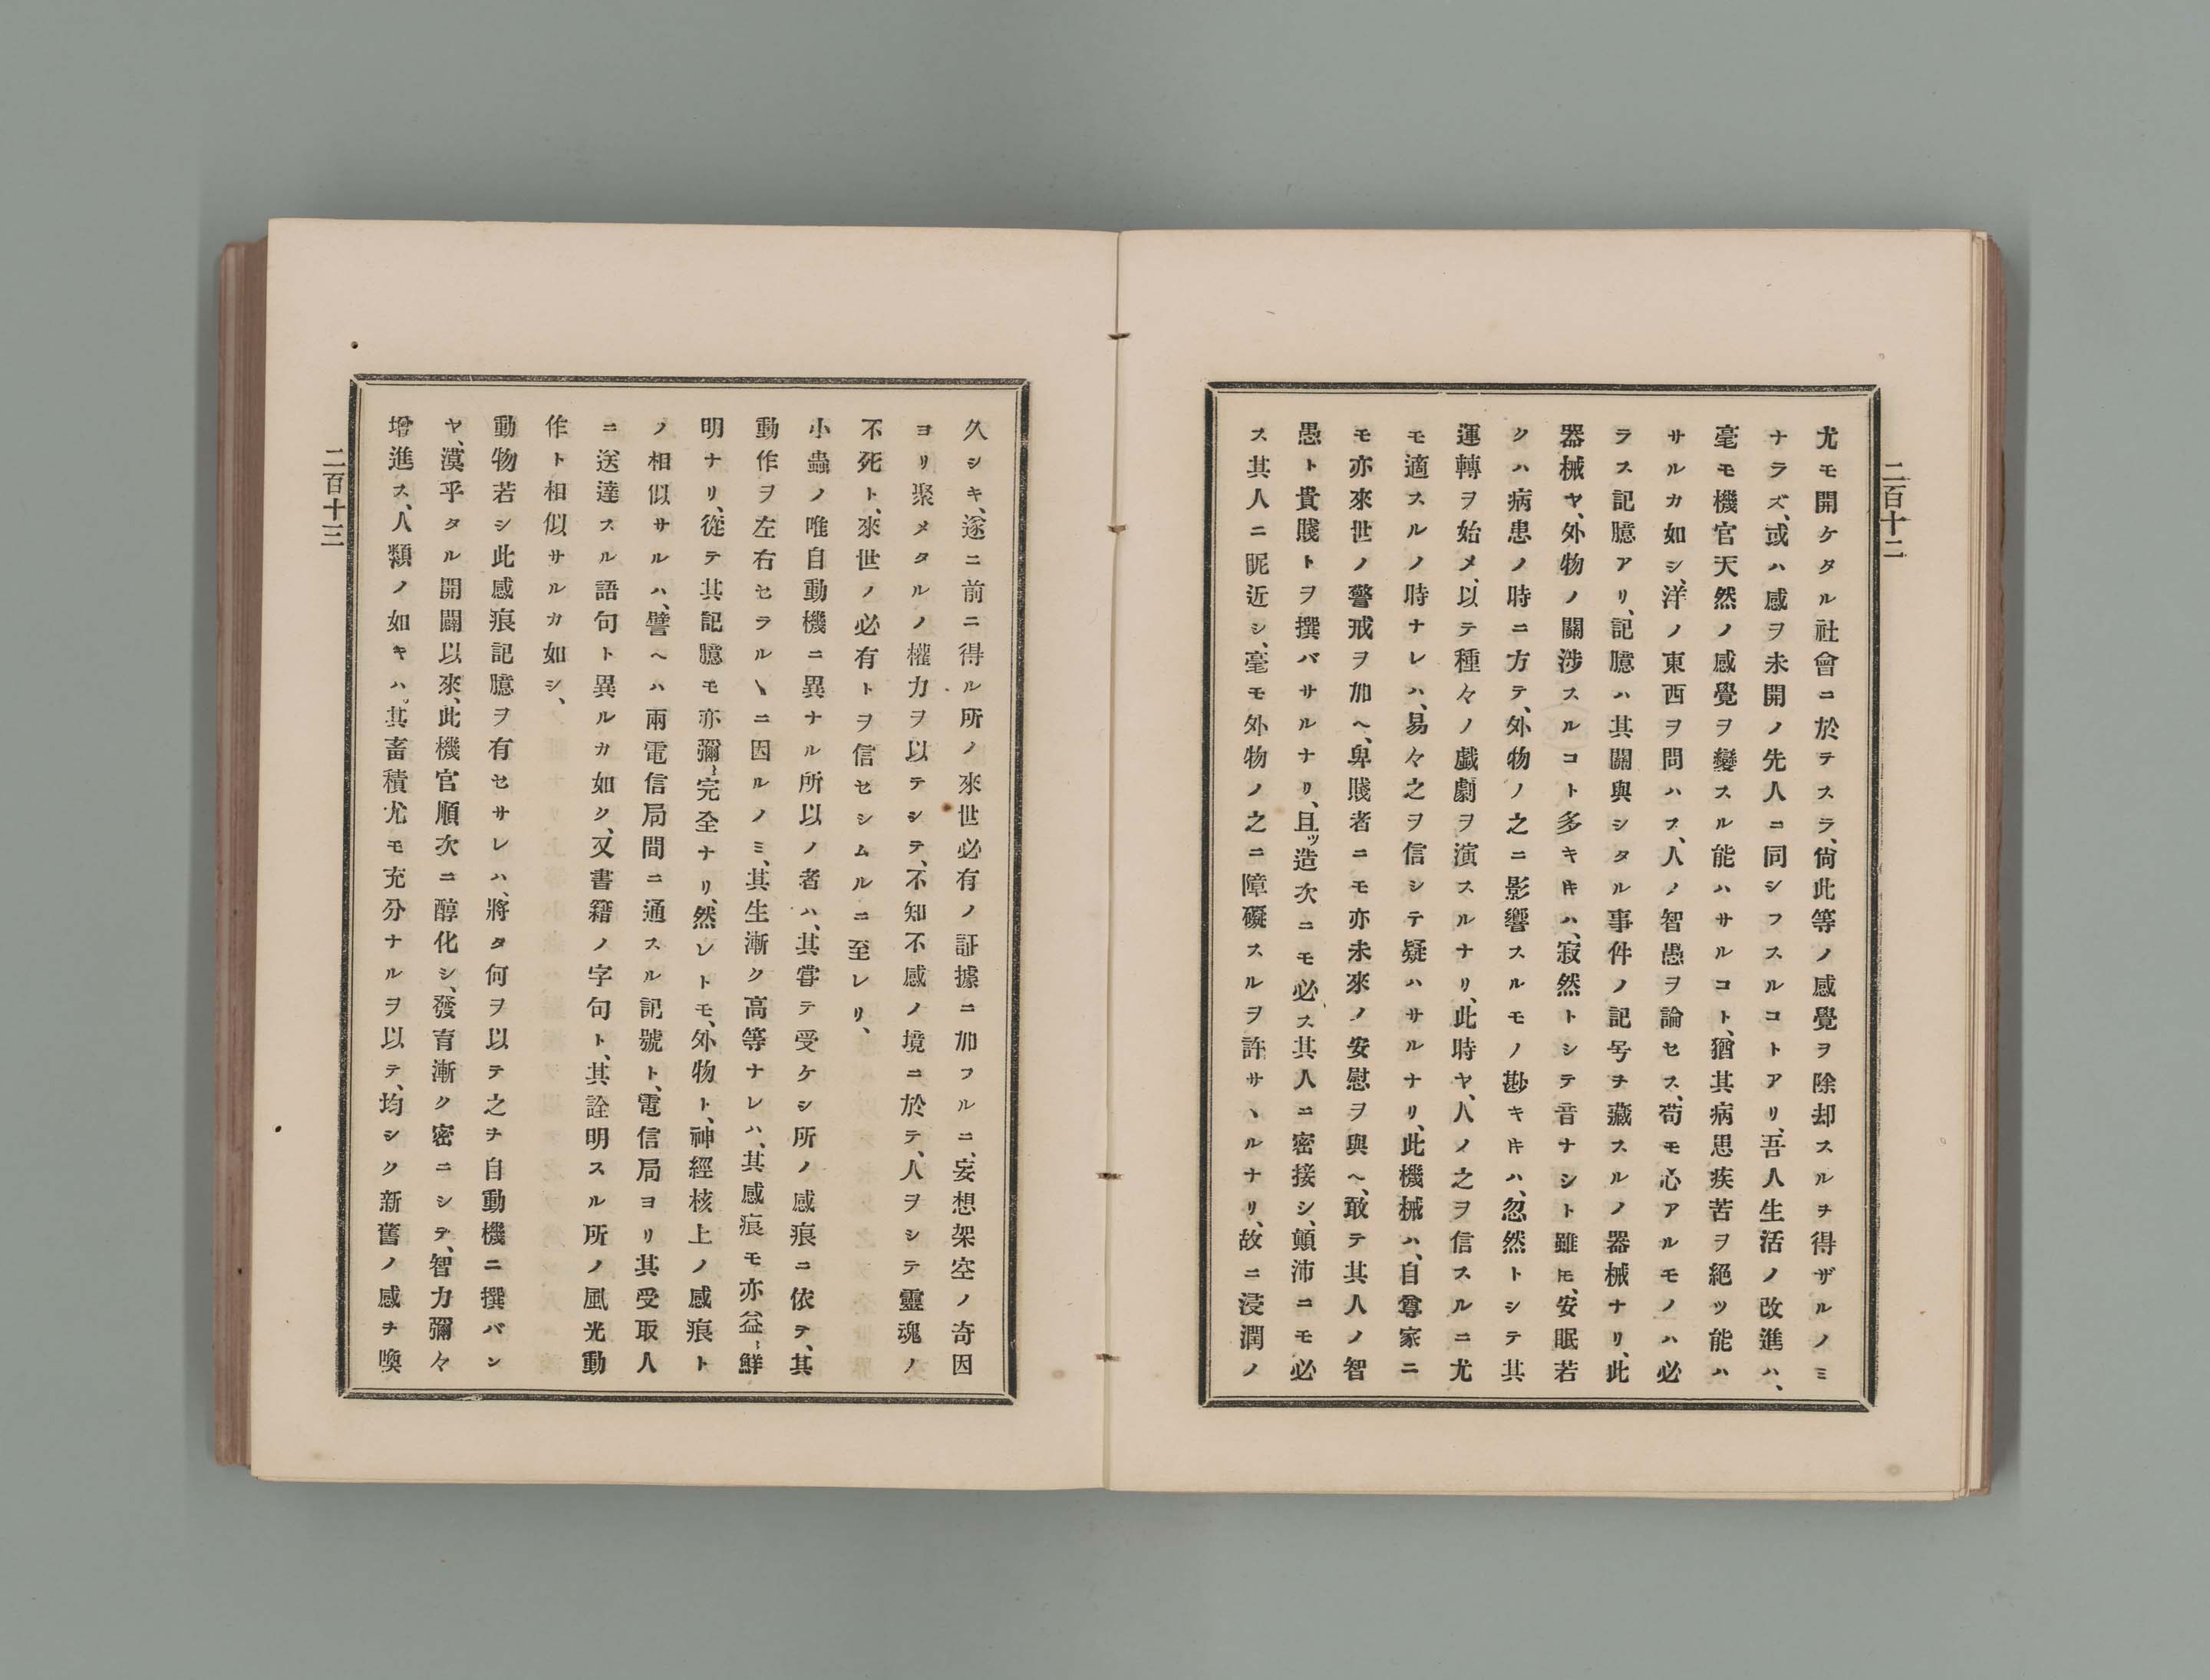 二百十二
尤モ開ケタル社會ニ於テスラ、尙此等ノ感覺ヲ除却スルヲ得ザルノミ
ナラズ、或ハ感ヲ未開ノ先人ニ同シフスルコトアリ、吾人生活ノ改進ハ、
毫モ機官天然ノ感覺ヲ變スル能ハサルコト、猶其病思疾苦ヲ絕ツ能ハ
サルカ如シ、洋ノ東西ヲ問ハス、人ノ智愚ヲ論セス、苟モ心アルモノハ必
ラス記臆アリ、記臆ハ其關與シタル事件ノ記号ヲ藏スルノ器械ナリ、此
器械ヤ、外物ノ關涉スルコト多キキハ、寂然トシテ音ナシト雖𪜈、安眠若
クハ病患ノ時ニ方テ、外物ノ之ニ影響スルモノ尠キキハ、忽然トシテ其
運轉ヲ始メ、以テ種々ノ戲劇ヲ演スルナリ、此時ヤ、人ノ之ヲ信スルニ尤
モ適スルノ時ナレハ、易々之ヲ信シテ疑ハサルナリ、此機械ハ、自尊家ニ
モ亦來世ノ警戒ヲ加ヘ、卑賤者ニモ亦未來ノ安慰ヲ與ヘ、敢テ其人ノ智
愚ト貴賤トヲ撰バサルナリ、且ツ造次ニモ必ス其人ニ密接シ、顚沛ニモ必
ス其人ニ昵近シ、毫モ外物ノ之ニ障礙スルヲ許サヽルナリ、故ニ浸潤ノ
久シキ、遂ニ前ニ得ル所ノ來世必有ノ証據ニ加フルニ、妄想架空ノ奇因
ヨリ聚メタルノ權力ヲ以テシテ、不知不感ノ境ニ於テ、人ヲシテ靈魂ノ
不死ト、來世ノ必有トヲ信セシムルニ至レリ、
小蟲ノ唯自動機ニ異ナル所以ノ者ハ、其嘗テ受ケシ所ノ感痕ニ依テ、其
動作ヲ左右セラルヽニ因ルノミ、其生漸ク高等ナレハ、其感痕モ亦益〻鮮
明ナリ、從テ其記臆モ亦彌〻完全ナリ、然レトモ、外物ト、神經核上ノ感痕ト
ノ相似サルハ、譬ヘハ兩電信局間ニ通スル記號ト、電信局ヨリ其受取人
ニ送達スル語句ト異ルカ如ク、又書籍ノ字句ト、其詮明スル所ノ風光動
作ト相似サルカ如シ、
動物若シ此感痕記臆ヲ有セサレハ、將タ何ヲ以テ之ヲ自動機ニ撰バン
ヤ、漠乎タル開闢以來、此機官順次ニ醇化シ、發育漸ク密ニシテ、智力彌々
增進ス、人類ノ如キハ。其畜積尤モ充分ナルヲ以テ、均シク新舊ノ感ヲ喚
二百十三